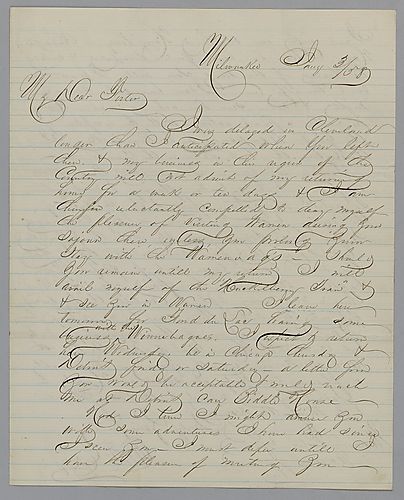 Milwaukee Aug 3/58
My Dear Sister
I was delayed in Cleveland
longer than I anticipated when you left
there, & my business in this region of the
Country will not admit of my returning
home for a week or ten days & I am
therefore reluctantly compelled to deny myself
the pleasure of Visiting Warren during your
Sojourn there unless you prolong your
Stay with the
your remain untill my return I will
avail myself of the Train &
& see you in Warren I leave here
tomorrow for Fond du Lac having some
business with the Winnebagoes. I expect to return
by Wednesday be in Chicago Thursday &
Detroit friday or Saturday a letter from
you would be acceptable & would reach
me at Detroit Care Biddle House
Had I time I might amuse you
with some adventures I have had since
I seen you I must defer untill
have the pleasure of meeting you